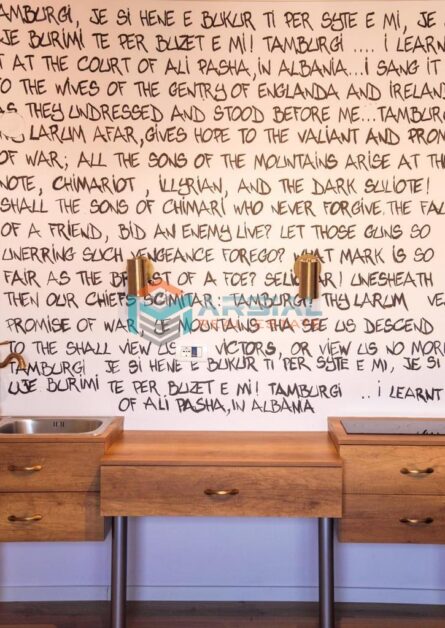 AMBURGI, JE SI HENE E BUKUR TI PER SYTE E MI, JE
JE BURIMI TE PER BUZET E MI! TAMBURGI .... I LEARN
T AT THE COURT OF ALI PASHA, IN ALBANIA...I SANG IT
TO THE WIVES OF THE GENTRY OF ENGLANDA AND IRELAND
AS THEY UNDRESSED AND STOOD BEFORE ME...TAMBURG
LARUM AFAR, GIVES HOPE TO THE VALIANT AND PROM
OF WAR; ALL THE SONS OF THE MOUNTAINS ARISE AT TH
NOTE, CHIMARIOT , ILLYRIAN, AND THE DARK SULIOTE!
SHALL THE SONS OF CHIMARI WHO NEVER FORGIVE THE FAU
OF A FRIEND, BID AN ENEMY LIVE? LET THOSE GUNS SO
UNERRING SUCH VENGEANCE FOREGO? WHAT MARK IS SO
FAIR AS THE OF A FOE? UNESHEATH
THEN OUR CHIEFS SCIMITAR: TAMBURGI THY LARUM
PROMISE OF WAR MOUNTAINS THA SEE US DESCEND
TO THE SHALL VIEW US VICTORS, OR VIEW US NO MOR
TAMBURGI JE SI HENE E BUKUR TI PER SYTE E MI, JE SI
UJE BURIMI TE PER BUZET E MI! TAMBURGI ... I LEARNT
OF ALI PASHA, IN ALBANIA
ARSIAL